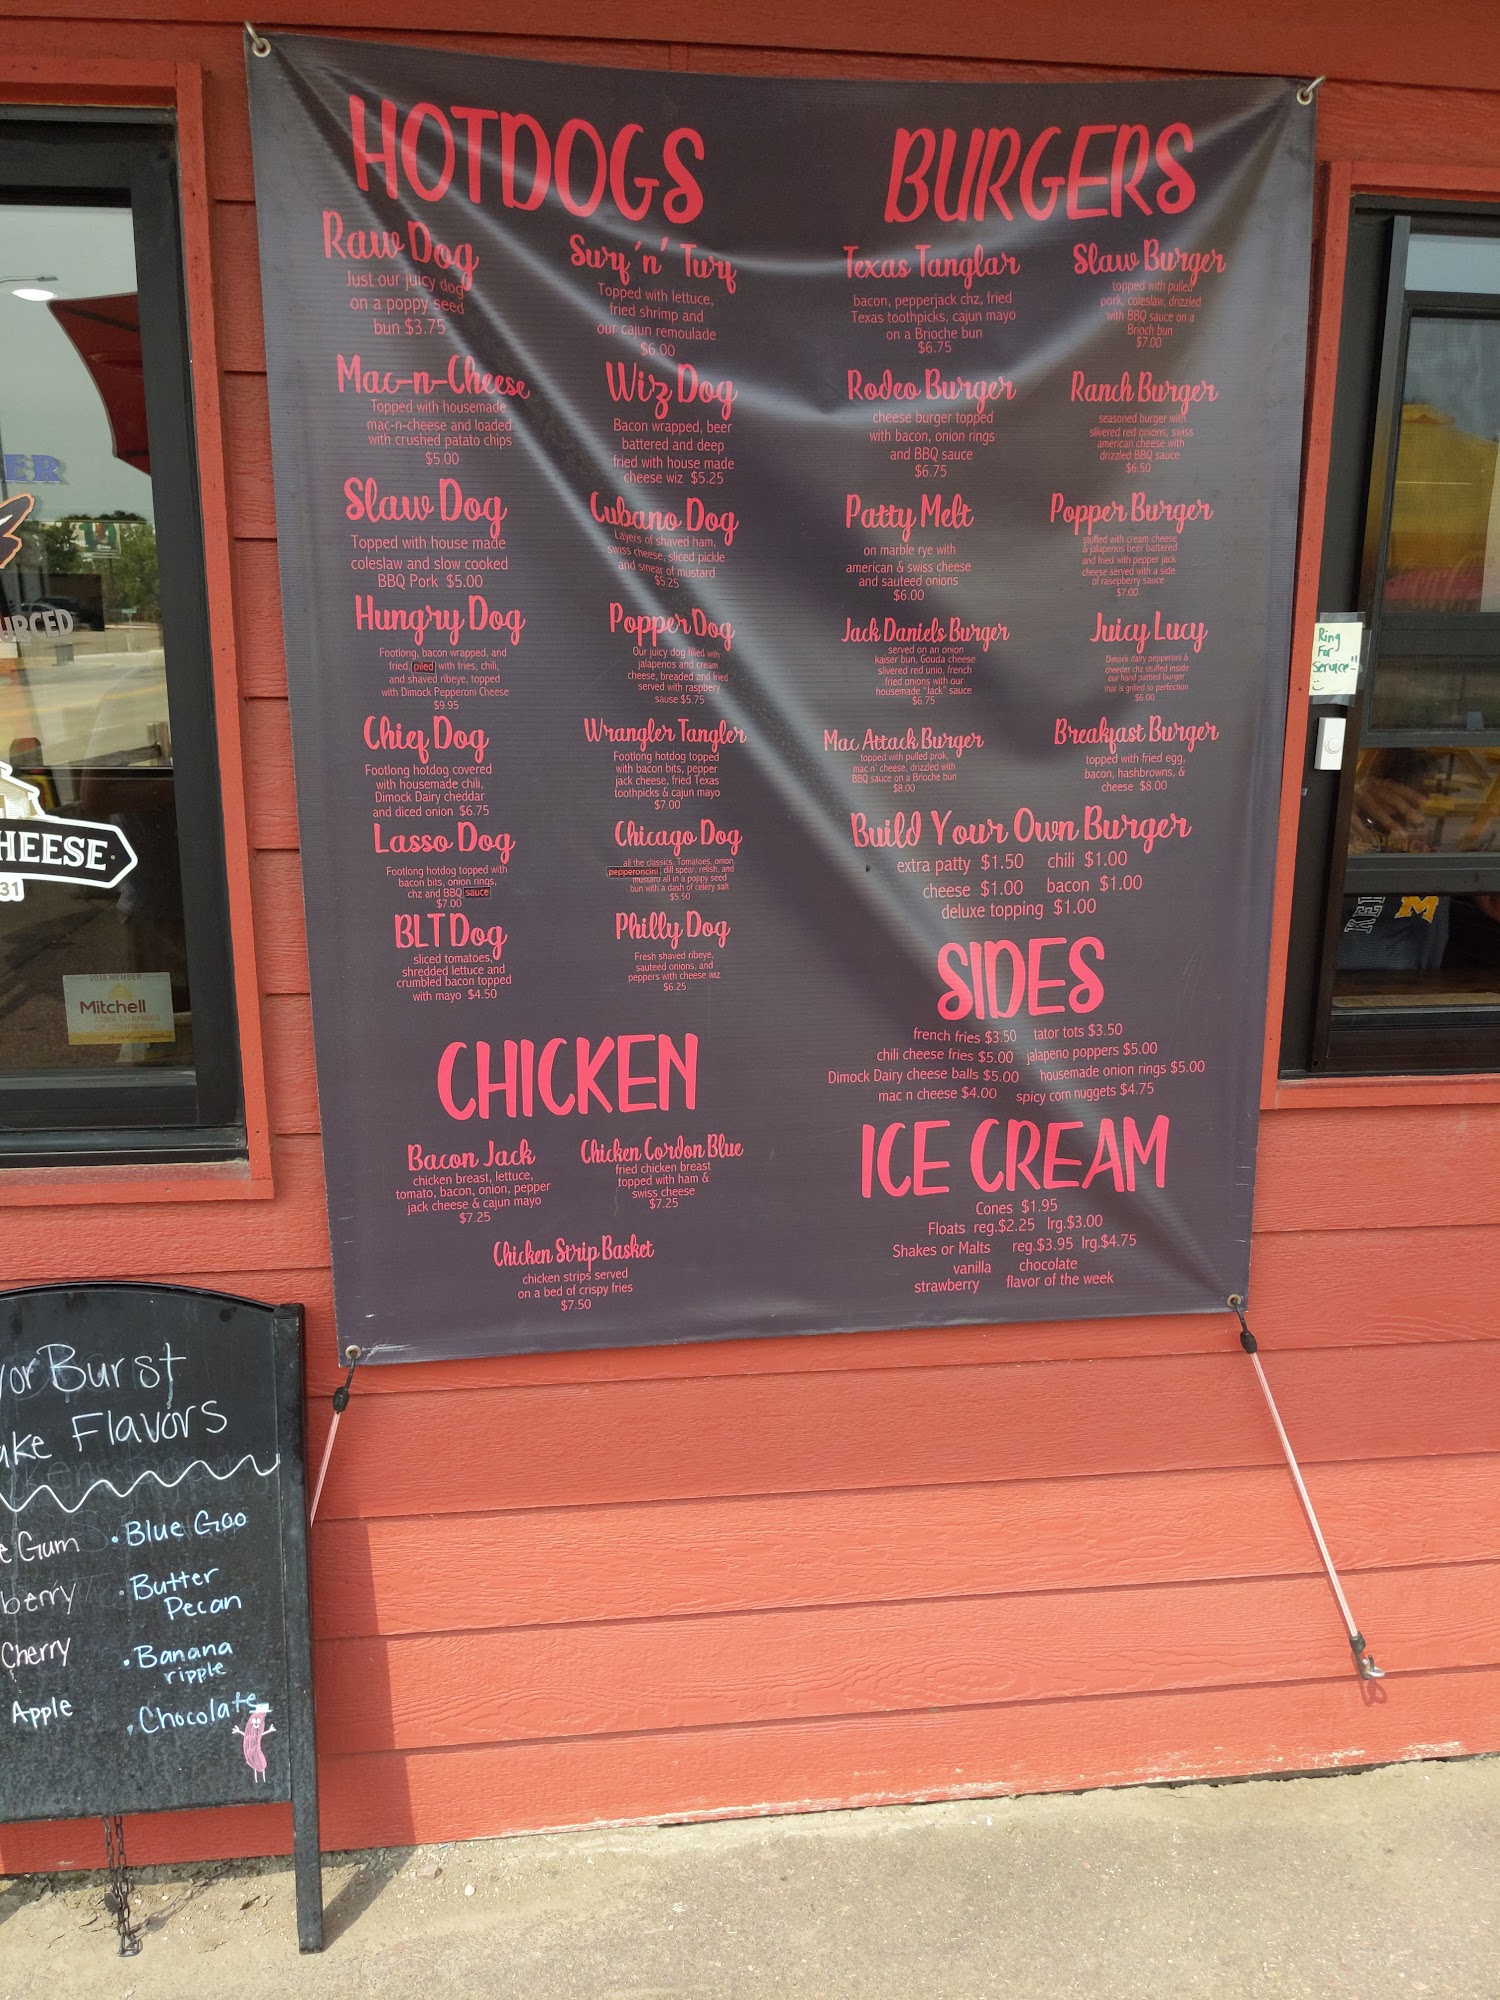 HOTDOGS
Raw Dog
Just our juicy dog
on a poppy seed
bun $3.75
Mac-n-Cheese
Topped with housemade
mac-n-cheese and loaded
with crushed patato chips
$5.00
Slaw Dog
Topped with house made
coleslaw and slow cooked
BBQ Pork $5.00
Hungry Dog
Footlong, bacon wrapped, and
fried, piled with fries, chili,
and shaved ribeye, topped
with Dimock Pepperoni Cheese
$9.95
Chief Dog
Footlong hotdog covered
with housemade chili,
Dimock Dairy cheddar
and diced onion $6.75
Lasso Dog
Footlong hotdog topped with
bacon bits, onion rings,
chz and BBQ sauce
$7.00
BLT Dog
sliced tomatoes,
shredded lettuce and
crumbled bacon topped
with mayo $4.50
Surf 'n' Turf
Topped with lettuce,
fried shrimp and
our cajun remoulade
$6.00
Wiz Dog
Bacon wrapped, beer
battered and deep
fried with house made
cheese wiz $5.25
Cubano Dog
Layers of shaved ham,
swiss cheese, sliced pickle
and smear of mustard
$5.25
Popper Dog
Our juicy dog filled with
jalapenos and cream
cheese, breaded and fried
served with raspbery
sause $5.75
Wrangler Tangler
Footlong hotdog topped
with bacon bits, pepper
jack cheese, fried Texas
toothpicks & cajun mayo
$7.00
Chicago Dog
all the classics. Tomatoes, onion,
pepperoncini, dill spear, relish, and
mustard all in a poppy seed
bun with a dash of celery salt
$5.50
Philly Dog
Fresh shaved ribeye,
sauteed onions, and
peppers with cheese wiz
$6.25
CHICKEN
Bacon Jack
chicken breast, lettuce,
tomato, bacon, onion, pepper
jack cheese & cajun mayo
$7.25
Chicken Cordon Blue
fried chicken breast
topped with ham &
swiss cheese
$7.25
Chicken Strip Basket
chicken strips served
on a bed of crispy fries
$7.50
BURGERS
Texas Tanglar
bacon, pepperjack chz, fried
Texas toothpicks, cajun mayo
on a Brioche bun
$6.75
Rodeo Burger
cheese burger topped
with bacon, onion rings
and BBQ sauce
$6.75
Patty Melt
on marble rye with
american & swiss cheese
and sauteed onions
$6.00
Jack Daniels Burger
served on an onion
kaiser bun, Gouda cheese
slivered red unio, french
fried onions with our
housemade "Jack" sauce
$6.75
Mac Attack Burger
topped with pulled prok,
mac n' cheese, drizzled with
BBQ sauce on a Brioche bun
$8.00
Slaw Burger
topped with pulled
pork, coleslaw, drizzled
with BBQ sauce on a
Brioch bun
$7.00
Ranch Burger
seasoned burger with
slivered red onions, swiss
american cheese with
drizzled BBQ sauce
$6.50
Popper Burger
stuffed with cream cheese
& jalapenos beer battered
and fried with pepper jack
cheese served with a side
of raspberry sauce
$7.00
Juicy Lucy
Dimock dairy pepperoni &
cheeder chz stuffed inside
our hand pattied burger
that is grilled to perfection
$6.00
Breakfast Burger
topped with fried egg,
bacon, hashbrowns, &
cheese $8.00
Build Your Own Burger
extra patty $1.50 chili $1.00
cheese $1.00 bacon $1.00
deluxe topping $1.00
SIDES
french fries $3.50 tator tots $3.50
chili cheese fries $5.00 jalapeno poppers $5.00
Dimock Dairy cheese balls $5.00 housemade onion rings $5.00
mac n cheese $4.00 spicy corn nuggets $4.75
ICE CREAM
Cones $1.95
Floats reg.$2.25 lrg.$3.00
Shakes or Malts reg.$3.95 lrg.$4.75
vanilla chocolate
strawberry flavor of the week
Ring
For
Service!!
M
ER
URCED
HEESE
31
2018 MEMBER
Mitchell
AREA CHAMBER
OF COMMERCE
vor Burst
ake Flavors
e Gum
berry
Cherry
Apple
• Blue Goo
• Butter
Pecan
• Banana
ripple
• Chocolate